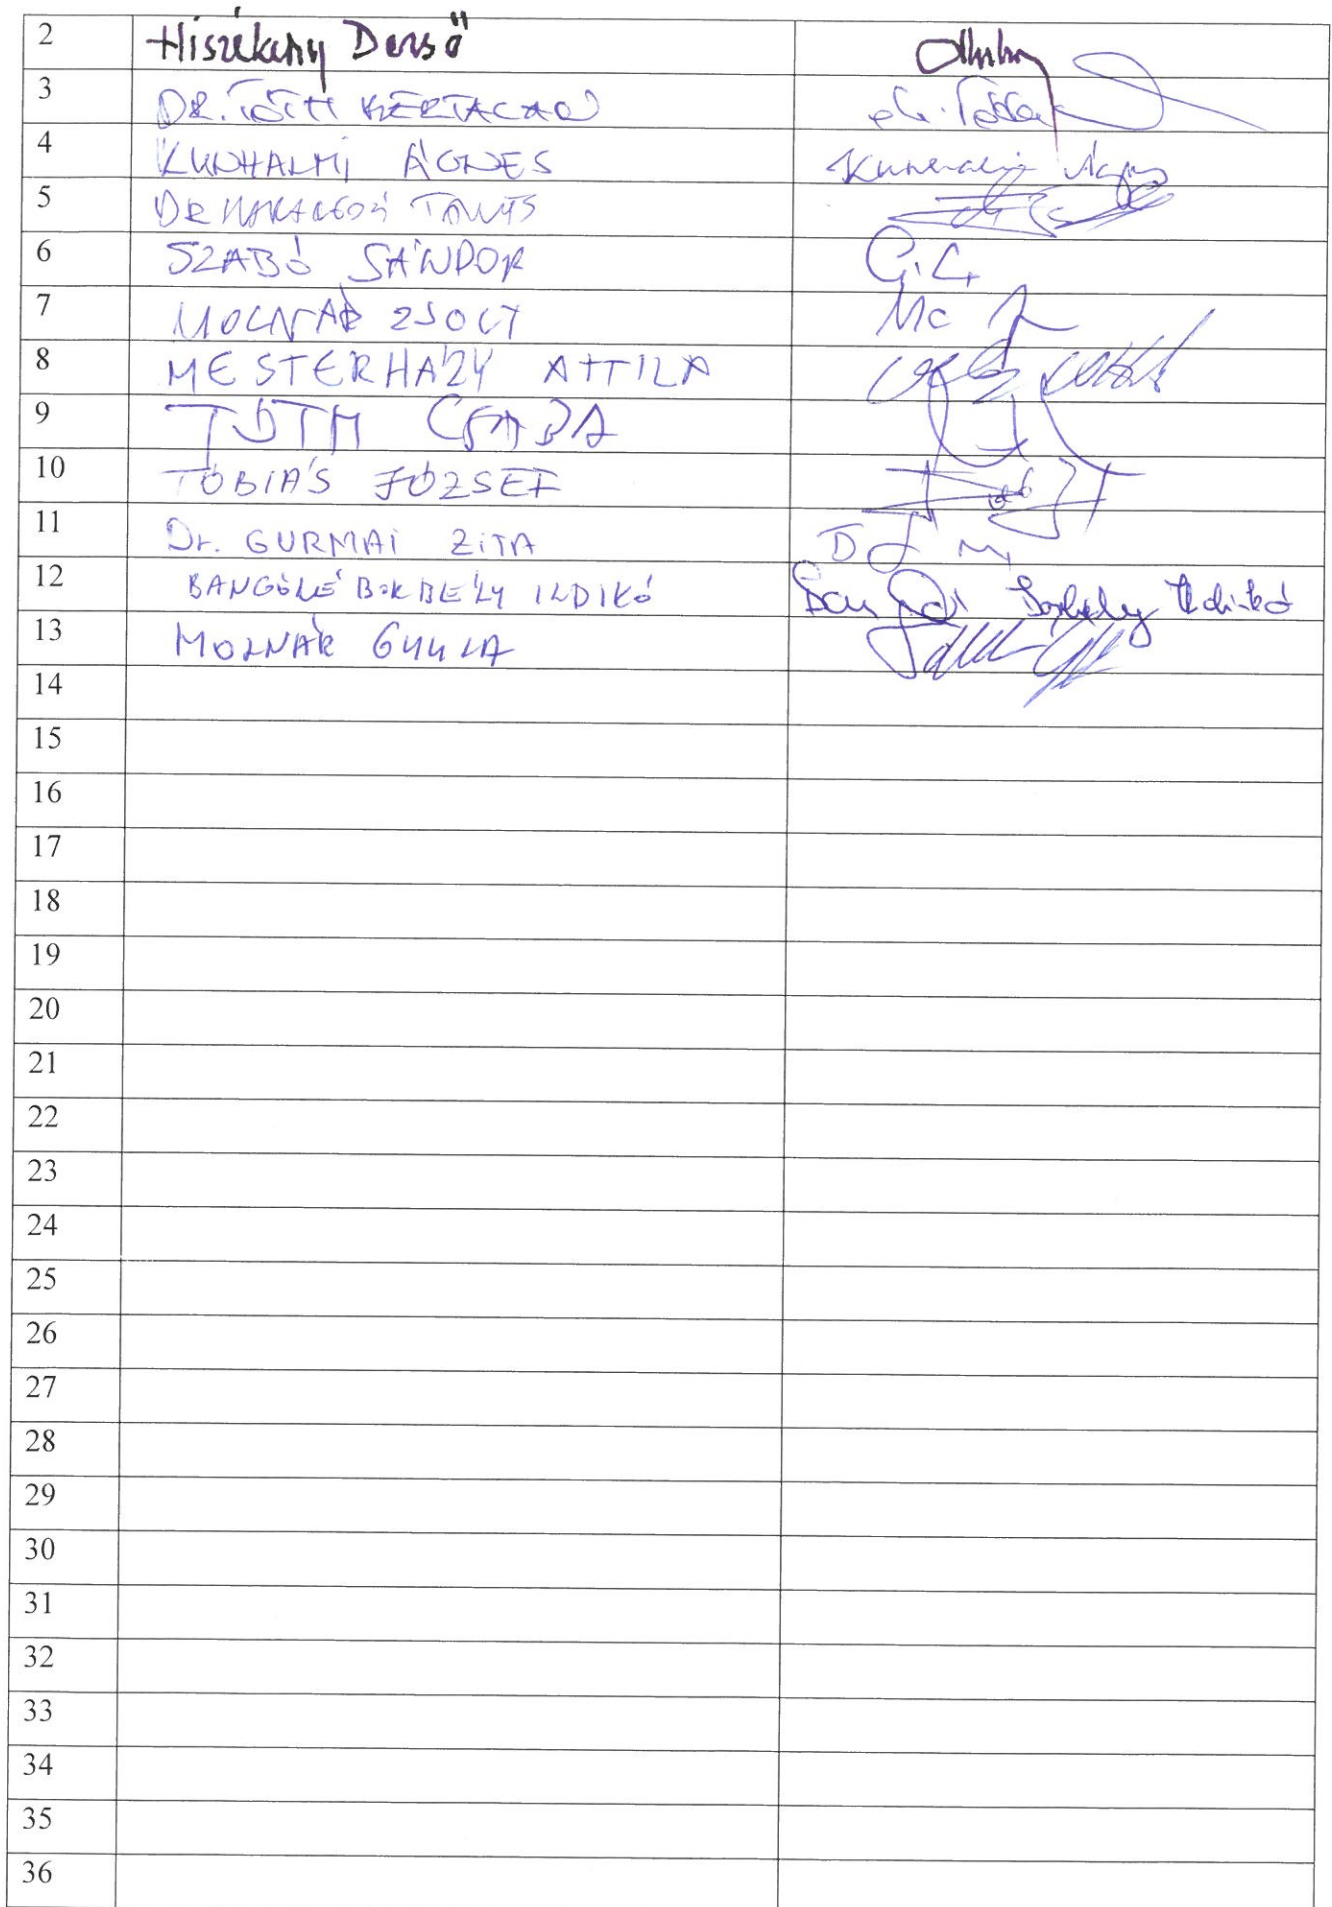 2 Hiszékeny Dezső
3 DR. TÓTH BERTALAN
4 KUNHALMI ÁGNES Kunhalmi Ágnes
5 DR HARANGOZÓ TAMÁS
6 SZABÓ SÁNDOR
7 MOLNÁR ZSOLT
8 MESTERHÁZY ATTILA
9 TÓTH CSABA
10 TÓBIÁS JÓZSEF
11 Dr. GURMAI ZITA
12 BANGÓNÉ BORBÉLY ILDIKÓ Bangóné Borbély Ildikó
13 MOLNÁR GYULA
14
15
16
17
18
19
20
21
22
23
24
25
26
27
28
29
30
31
32
33
34
35
36